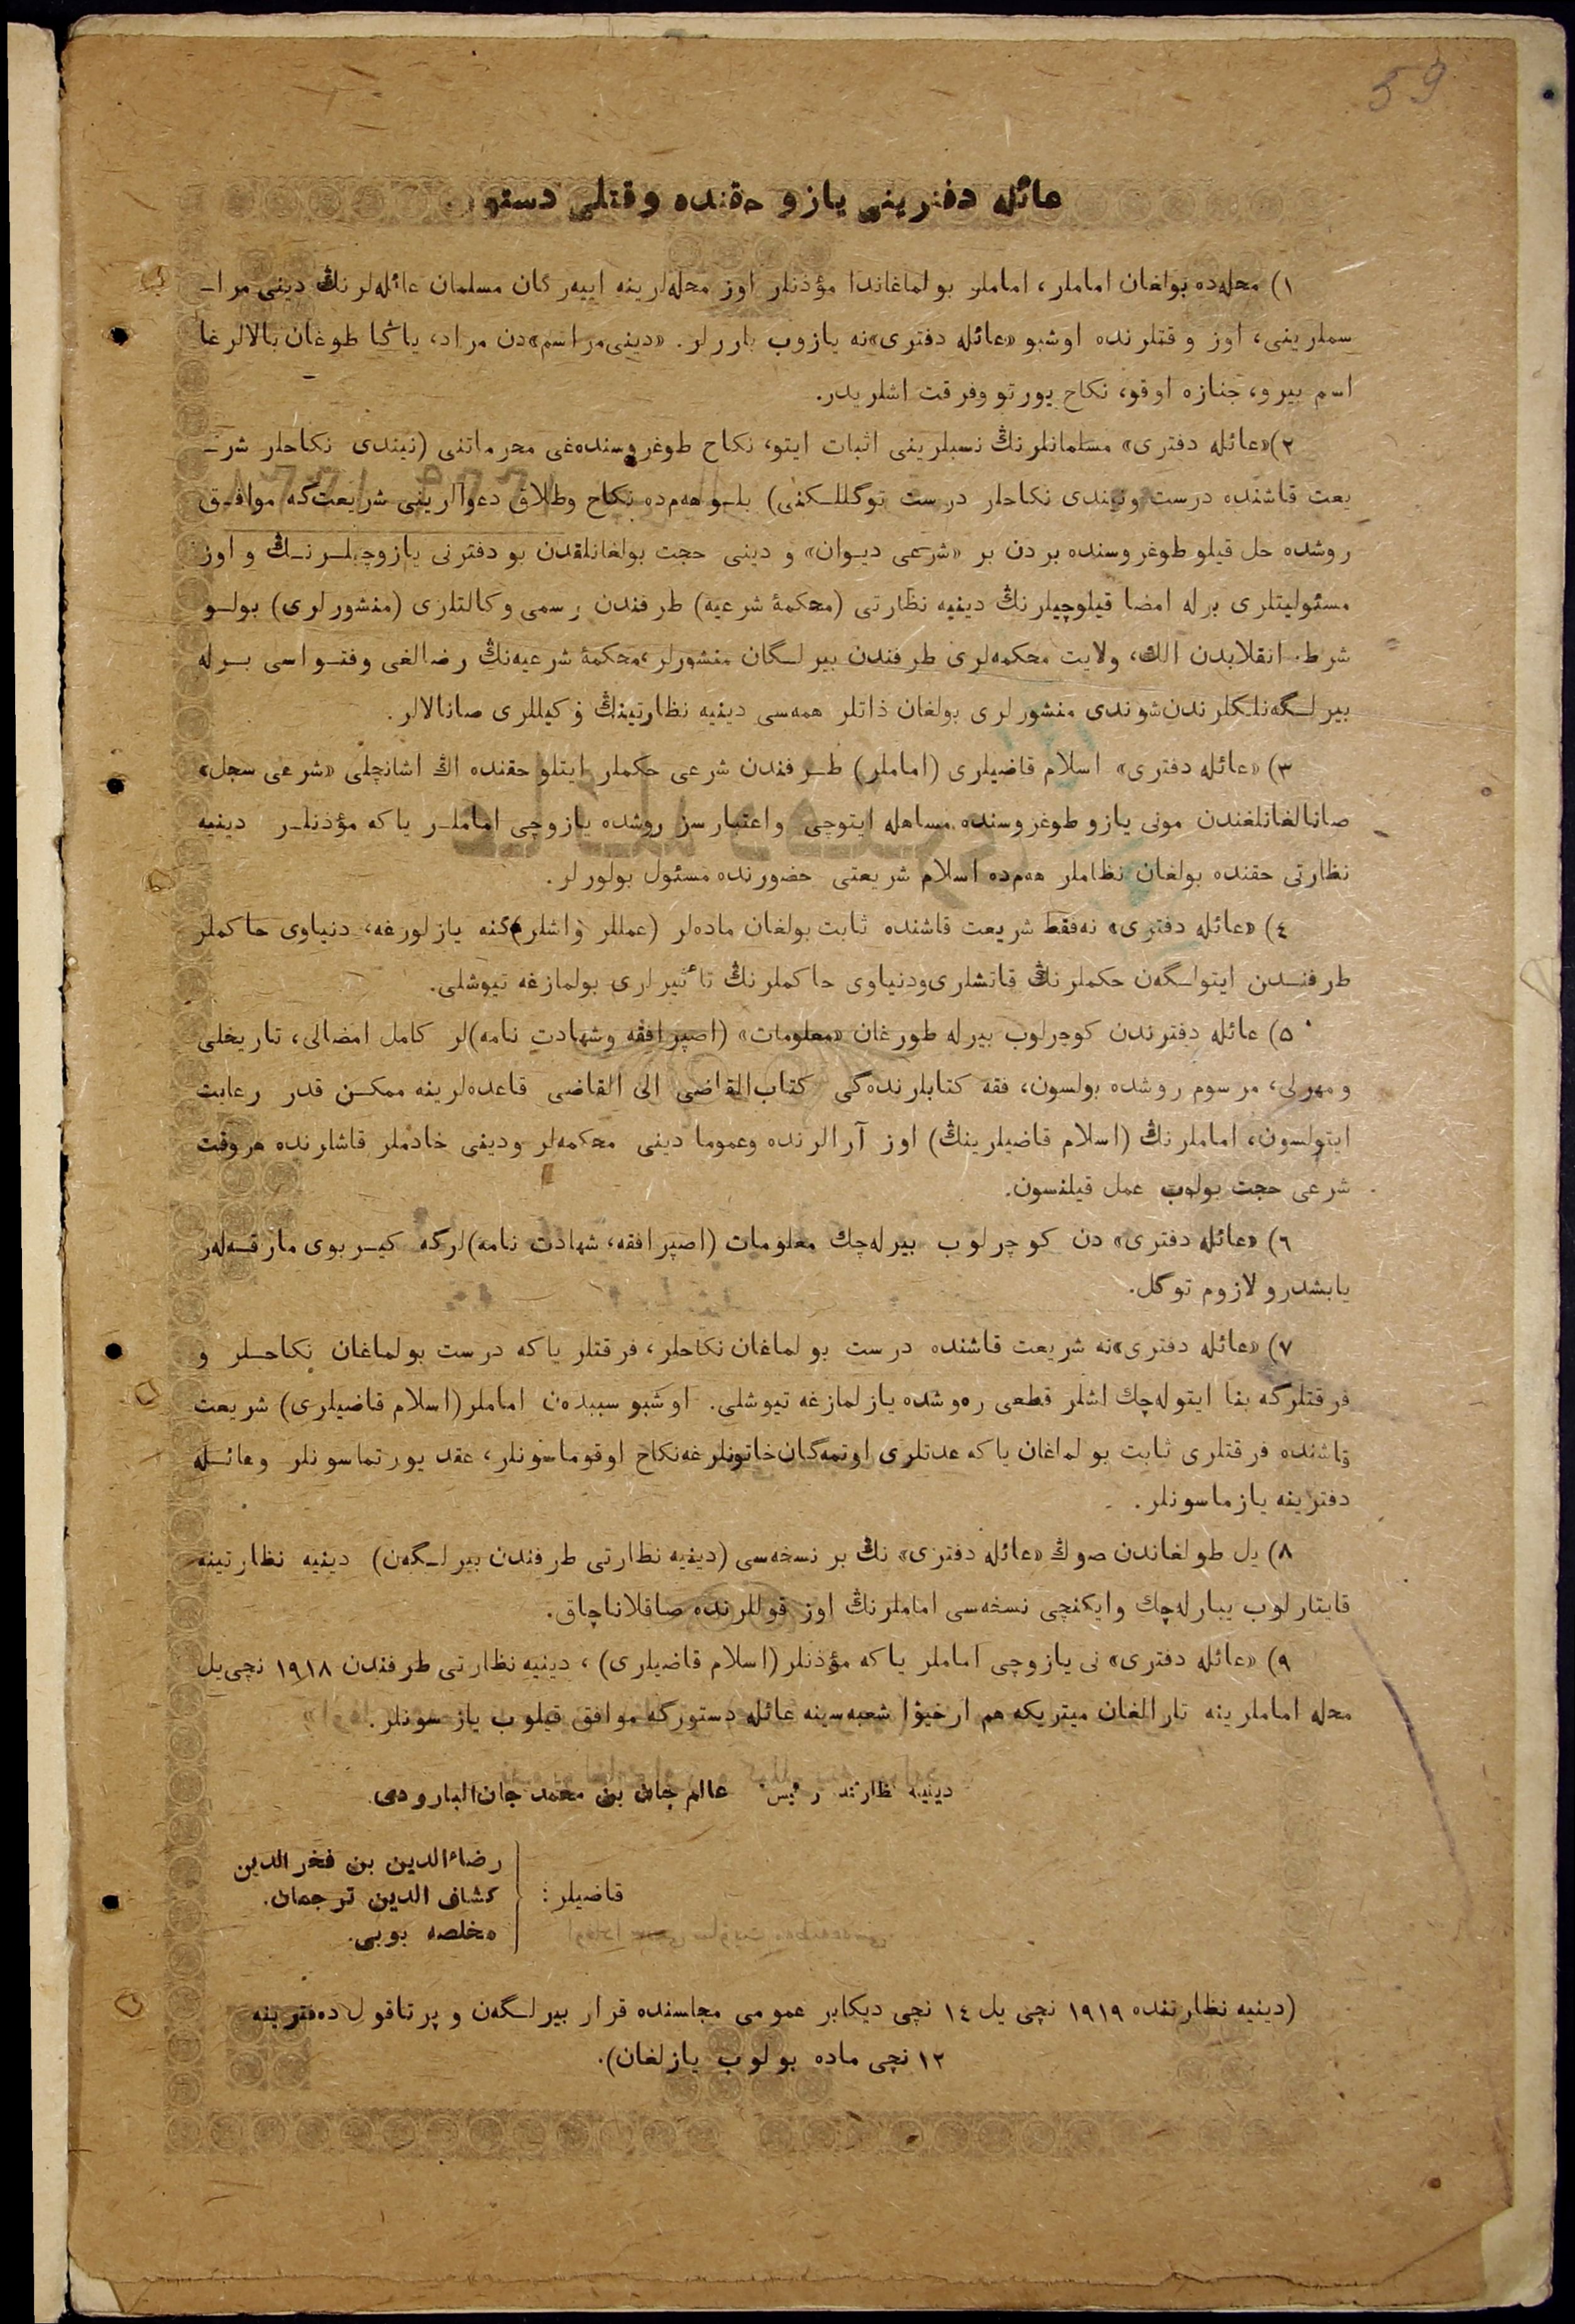 59
عائله دفترينى يازو حقنده وقتلى دستور.
١) محله‌ده بولغان اماملر، اماملر بولماغاندا مؤذنلر اوز محله‌لرينه اييه‌رگان مسلمان عائله‌لرنڭ دينى مرا-
سملرينى، اوز وقتلرنده اوشبو «عائله دفترى»نه يازوب باررلر. «دينى مراسم»دن مراد، ياڭا طوغان بالالرغا
اسم بيرو، جنازه اوقو، نكاح يورتو وفرقت اشلريدر.
٢) «عائله دفترى» مسلمانلرنڭ نسبلرينى اثبات ايتو، نكاح طوغروسنده‌غى محرماتنى (نيندى نكاحلر شر-
يعت قاشنده درست ونيندى نكاحلر درست توگللـكنى) بلـو هم‌ده نكاح وطلاق دعوالرينى شريعت‌گه موافـق
روشده حل قيلو طوغروسنده بردن بر «شرعى ديـوان» و دينى حجت بولغانلقدن بو دفترنى يازوچيلـرنـڭ و اوز
مسئوليتلرى برله امضا قيلوچيلرنڭ دينيه نظارتى (محكمۀ شرعيه) طرفندن رسمى وكالتلرى (منشورلرى) بولـو
شرط. انقلابدن الك، ولايت محكمه‌لرى طرفندن بيرلـگان منشورلر، محكمۀ شرعيه‌نڭ رضالغى وفتـواسى بـرله
بيرلـگه‌نلكلرندن شوندى منشورلرى بولغان ذاتلر همه‌سى دينيه نظارتينڭ وكيللرى صانالالر.
٣) «عائله دفترى» اسلام قاضيلرى (اماملر) طـرفندن شرعى حكملر ايتلو حقنده اڭ اشانچلى «شرعى سجل»
صانالغانلغندن مونى يازو طوغروسنده مساهله ايتوچى واعتبارسز روشده يازوچى اماملـر ياكه مؤذنلـر دينيه
نظارتى حقنده بولغان نظاملر هم‌ده اسلام شريعتى حضورنده مسئول بولورلر.
٤) «عائله دفترى» نه‌فقط شريعت قاشنده ثابت بولغان ماده‌لر (عمللر واشلر)گنه يازلورغه، دنياوى حاكملر
طرفنـدن ايتولـگه‌ن حكملرنڭ قاتشلرى ودنياوى حاكملرنڭ تأثيرلرى بولمازغه تيوشلى.
٥) عائله دفترندن كوچرلوب بيرله طورغان «معلومات» (اصپرافقه وشهادت نامه)لر كامل امضالى، تاريخلى
ومهرلى، مرسوم روشده بولسون، فقه كتابلرنده‌گى كتاب‌القاضى الى القاضى قاعده‌لرينه ممكـن قدر رعايت
ايتولسون، اماملرنڭ (اسلام قاضيلرينڭ) اوز آرالرنده وعموما دينى محكمه‌لر ودينى خادملر قاشلرنده هروقت
شرعى حجت بولوب عمل قيلنسون.
٦) «عائله دفترى» دن كوچرلوب بيرله‌چك معلومات (اصپرافقه، شهادت نامه)لرگه گيـربوى مارقـه‌لەر
يابشدرو لازوم توگل.
٧) «عائله دفترى»نه شريعت قاشنده درست بولماغان نكاحلر، فرقتلر ياكه درست بولماغان نكاحـلر و
فرقتلرگه بنا ايتوله‌چك اشلر قطعى ره‌وشده يازلمازغه تيوشلى. اوشبو سببده‌ن اماملر (اسلام قاضيلرى) شريعت
قاشنده فرقتلرى ثابت بولماغان ياكه عدتلرى اوتمه‌گان خاتونلرغه نكاح اوقوماسونلر، عقد يورتماسونلر وعائـله
دفترينه يازماسونلر.
٨) يل طولغاندن صوڭ «عائله دفترى» نڭ بر نسخه‌سى (دينيه نظارتى طرفندن بيرلـگه‌ن) دينيه نظارتينه
قايتارلوب يبارله‌چك وايكنچى نسخه‌سى اماملرنڭ اوز قوللرنده صاقلاناچاق.
٩) «عائله دفترى» نى يازوچى اماملر ياكه مؤذنلر (اسلام قاضيلرى)، دينيه نظارتى طرفندن ١٩١٨ نچى يل
محله اماملرينه تارالغان ميتريكه هم ارخيوا شعبه‌سينه عائله دستورگه موافق قيلوب يازسونلر.
دينيه نظارتى رئيسى عالم جان بن محمد جان البارودى.
رضاءالدين بن فخرالدين
قاضيلر: كشاف الدين ترجمان.
مخلصه بوبى.
(دينيه نظارتنده ١٩١٩ نچى يل ١٤ نچى ديكابر عمومى مجلسنده قرار بيرلـگه‌ن و پرتاقول ده‌فترينه
١٢ نچى ماده بولوب يازلغان).